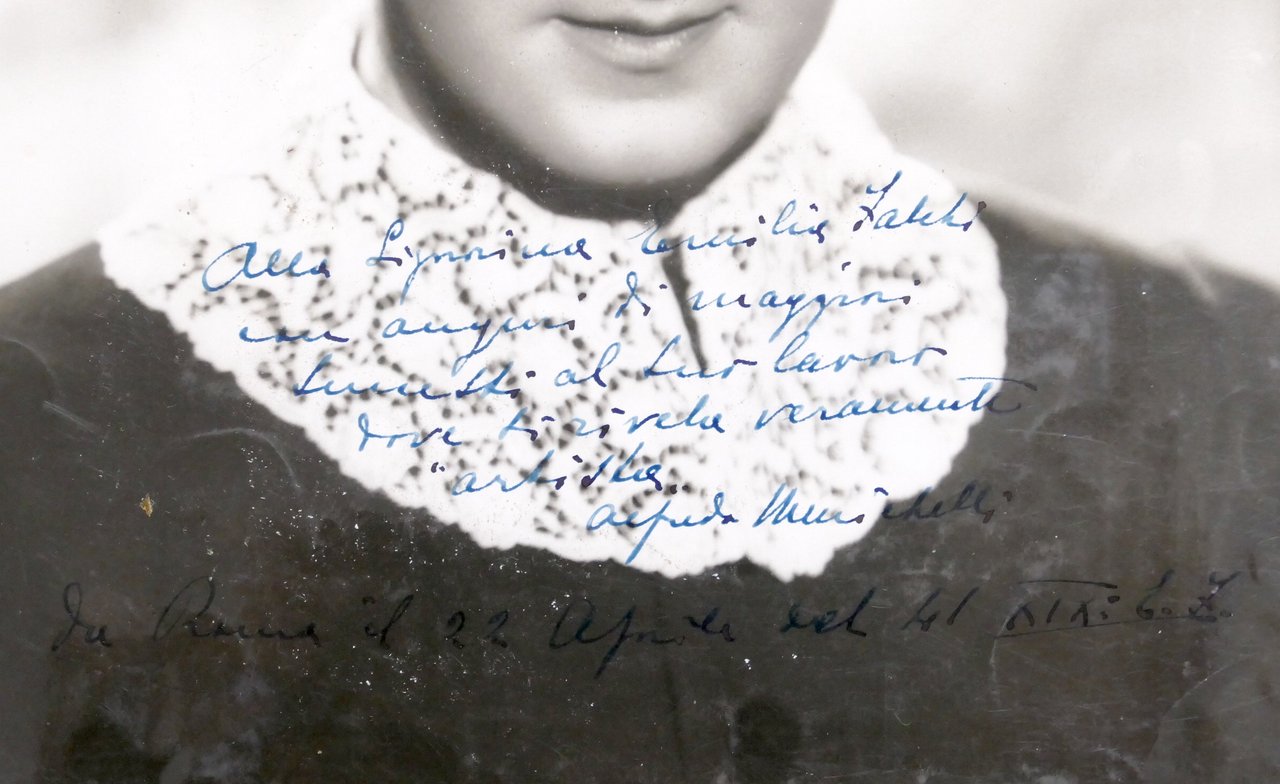 Alla Signorina Emilia Fabbi
con auguri di maggiori
successi al suo lavoro
dove si rivela veramente
"artista"
da Roma il 22 Aprile del 41 XIX.